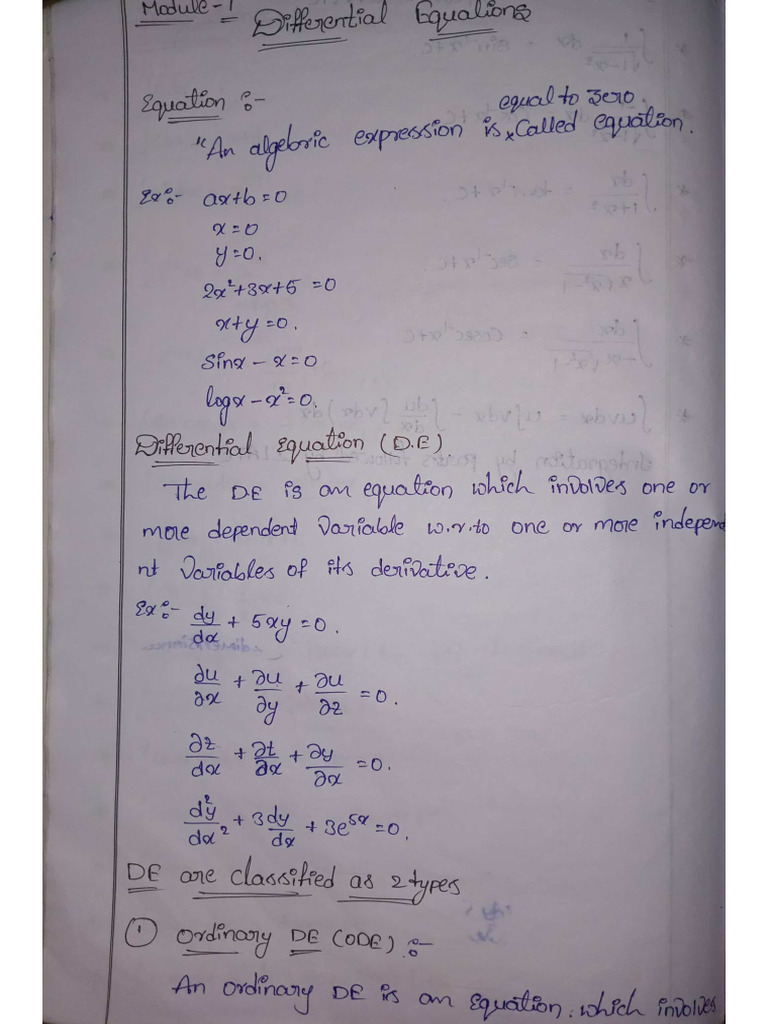 Module-1
Differential Equations
Equation :-
equal to zero.
"An algebric expression is ×Called equation.
Ex:- ax+b=0
x=0
y=0.
2x²+3x+5 =0
x+y=0.
Sinx - x=0
logx - x²=0.
Differential Equation (D.E)
The DE is an equation which involves one or
more dependent Variable w.r.to one or more independe
nt Variables of its derivative.
Ex:- dy/dx + 5xy=0.
∂u/∂x + ∂u/∂y + ∂u/∂z =0.
∂z/dx + ∂t/∂x + ∂y/∂x =0.
d²y/dx² + 3dy/dx + 3e^5x =0.
DE are classified as 2 types
① Ordinary DE (ODE) :-
An ordinary DE is an Equation. which involves